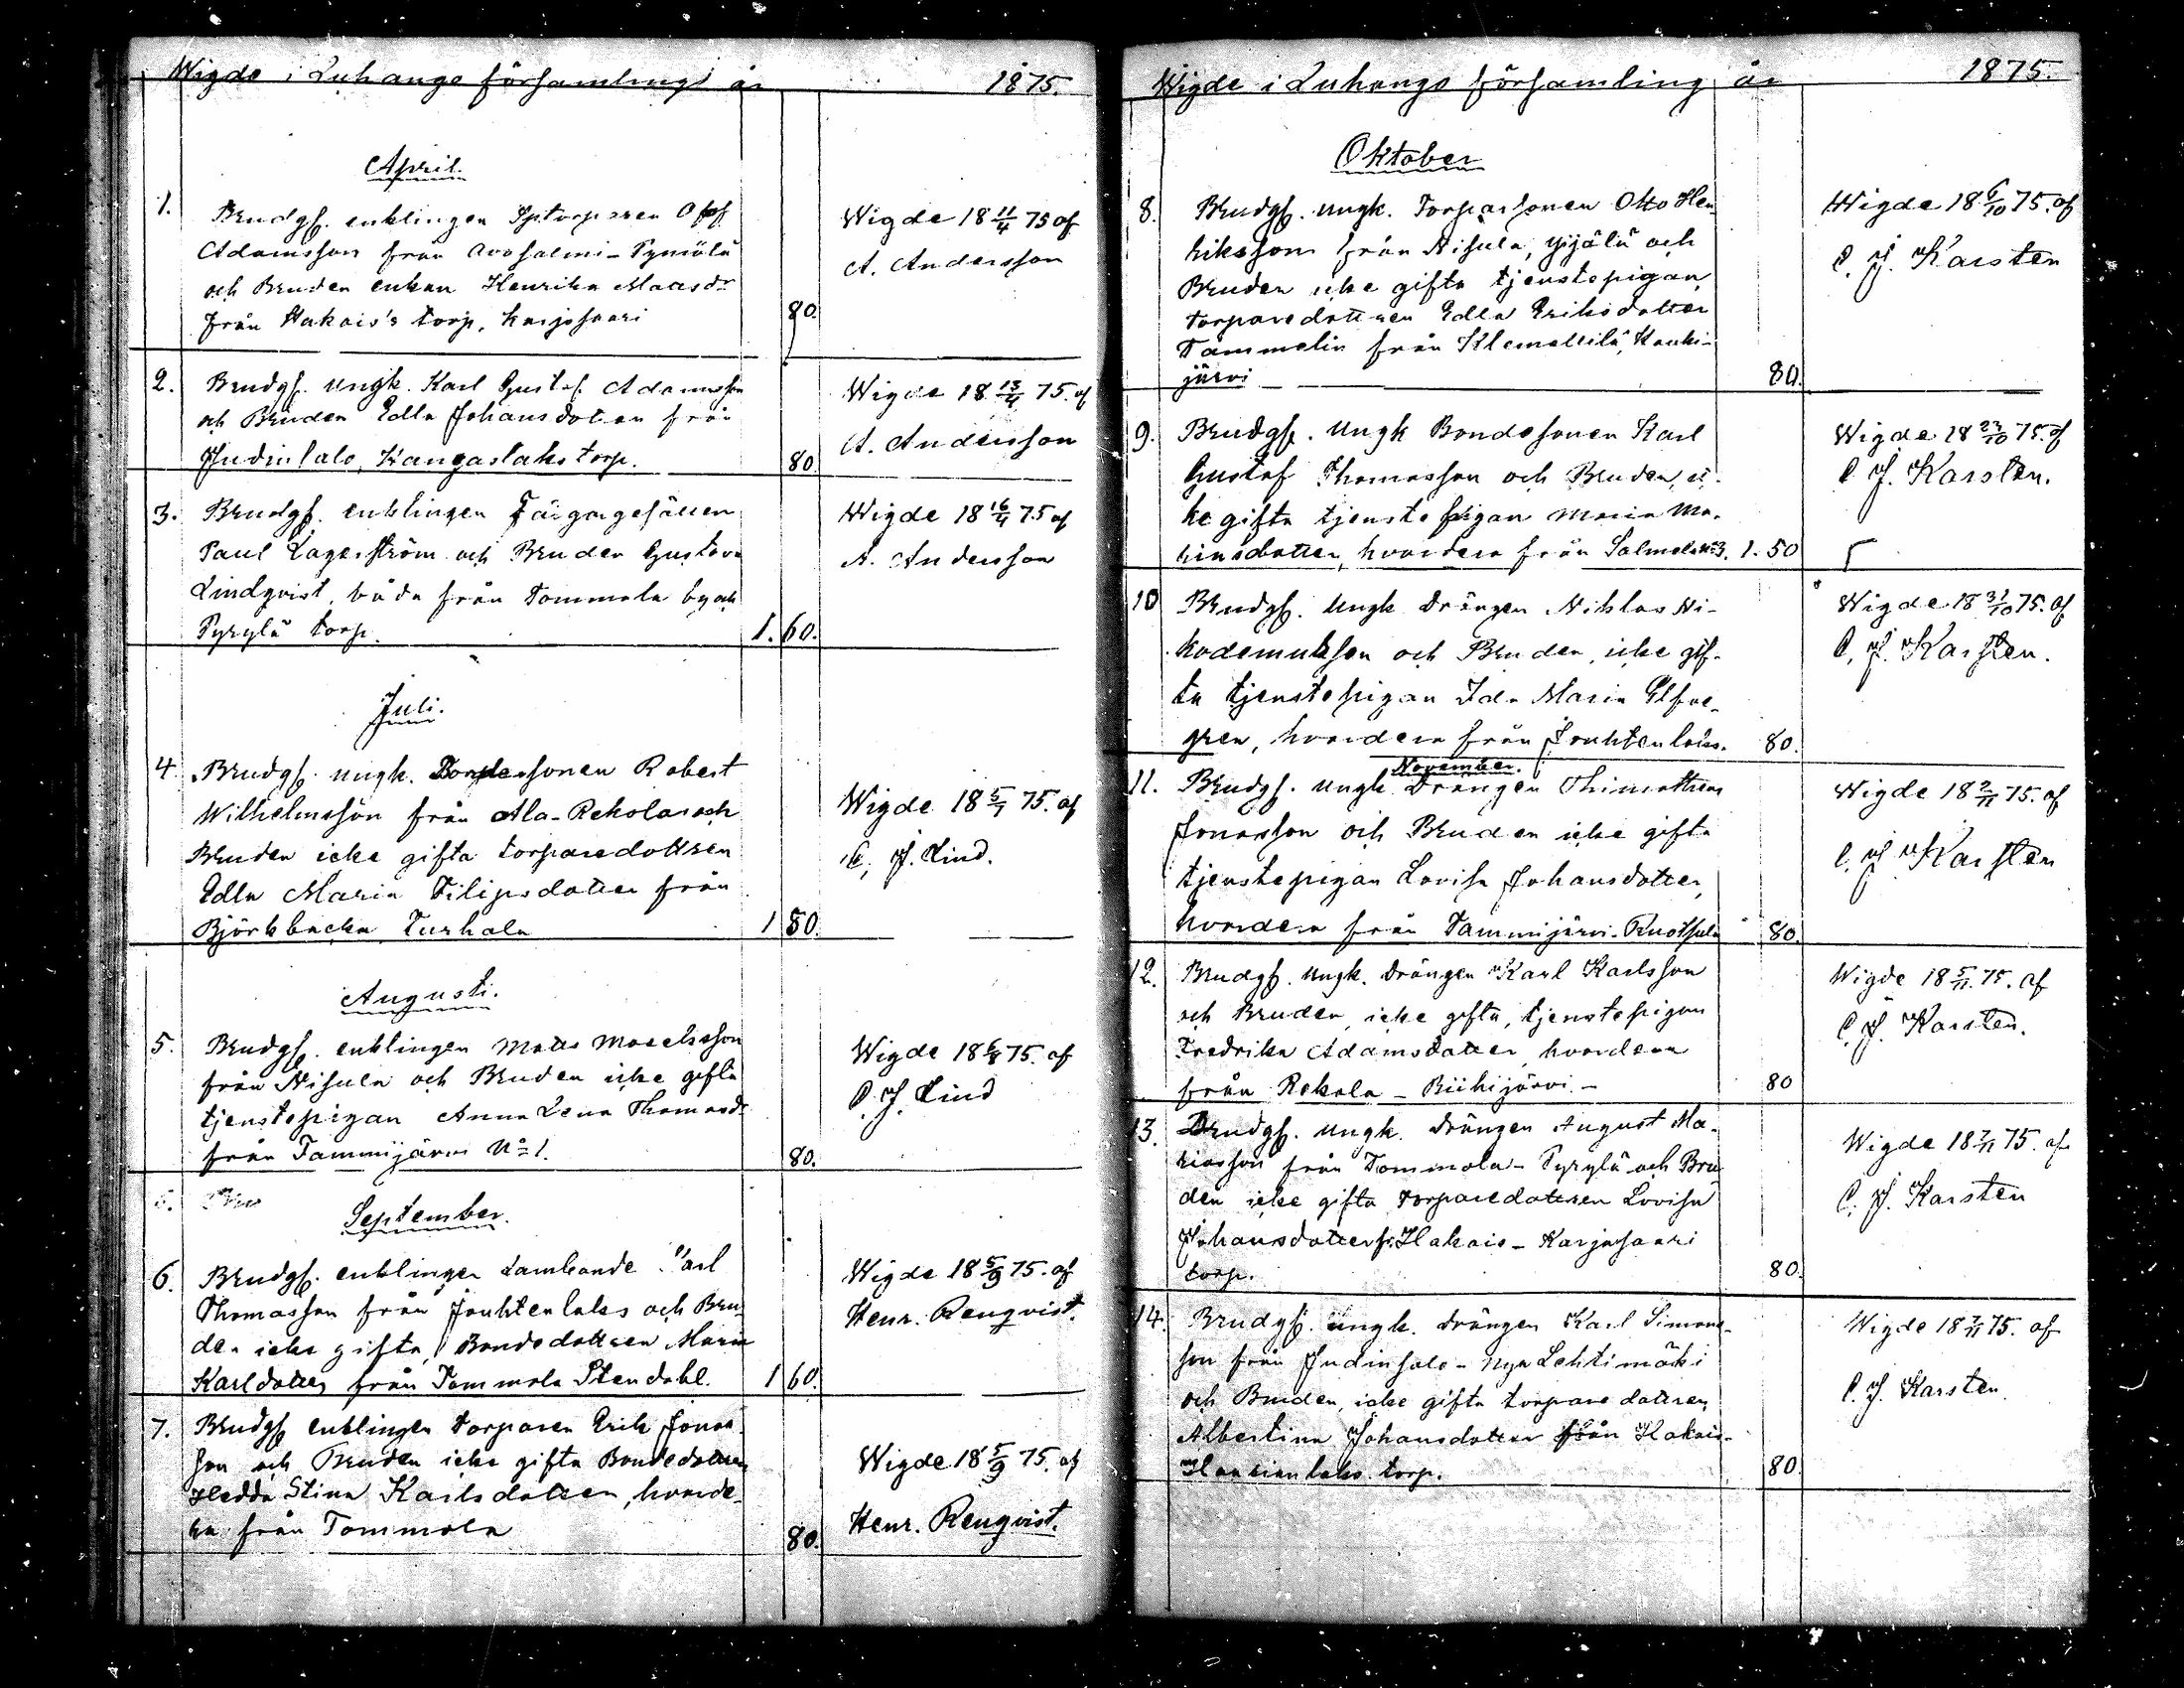 Wigde i Luhango församlings år 1875.
April.
1. Brudgȷ. enklingen Sptorparen Olof
Adamsson från Avosalmi-Pynnölä
och Bruden enkan Henrika Matsdr
från Hakais's torp, Karjosaari 80.
Wigde 18 11/4 75 af
A. Andersson
2. Brudg. ungk. Karl Gustaf Adamsson
och Bruden Edla Johansdotter från
Judinsalo, Kangaslaks torp. 80.
Wigde 18 13/4 75. af
A. Andersson
3. Brudg. enklingen Färgargesällen
Paul Lagerström och Bruden Gustava
Lindqvist, båda från Tommola by och
Pyrylä torp. 1. 60.
Wigde 18 16/4 75 af
A. Andersson
Juli.
4. Brudg. ungk. Bondesonen Robert
Wilhelmsson från Ala-Rekola och
Bruden icke gifta torparedottren
Edla Maria Filipsdotter från
Björkbacka Turhala 1 50.
Wigde 18 5/7 75. af
C. J. Lind.
Augusti.
5. Brudg. enklingen Matts
från Nisula och Bruden icke gifta
tjenstepigan Anna Lena Thomasdr
från Tammijärvi No 1. 80.
Wigde 18 6/8 75. af
C. J. Lind
September.
6. Brudg. enklingen Landbonde Karl
Thomasson från Jouhtenlaks och Bru-
den icke gifta, Bondedottren Maria
Karldotter från Tommola Stendahl. 1 60.
Wigde 18 5/9 75. af
Henr. Renqvist.
7. Brudg. enklingen torparen Erik Jonas-
son och Bruden icke gifta Bondedottren
Hedda Stina Karlsdotter, hvarde-
ra från Tommola 80.
Wigde 18 5/9 75. af
Henr. Renqvist.
Wigde i Luhango församling år 1875.
Oktober
8. Brudg. ungk. Torparsonen Otto Hen-
riksson från Nisula, Yijälä och
Bruden icke gifta tjenstepigan,
torparedottren Edla Eriksdotter
Tammelin från Klemettilä, Kauhi-
järvi 80.
Wigde 18 6/10 75. af
C. J. Karsten
9. Brudg. ungk Bondesonen Karl
Gustaf Thomasson och Bruden, ic-
ke gifta tjenstepigan Maria Ma-
kinsdotter, hvardera från Salmela No 3. 1. 50
Wigde 18 23/10 75. af
C. J. Karsten.
10 Brudg. ungk drängen Niklas Ni-
kodemusson och Bruden, icke gif-
ta tjenstepigan Ida Maria Elfve-
gren, hvardera från Jouhtenlaks. 80.
Wigde 18 31/10 75. af
C. J. Karsten.
November.
11. Brudg. ungk. Drängen Thimotheus
Jonasson och Bruden icke gifta
tjenstepigan Lovisa Johansdotter,
hvardera från Tammijärvi-Ruotsula 80.
Wigde 18 2/11 75. af
C. J. Karsten
12. Brudg. ungk. drängen Karl Karlsson
och Bruden, icke gifta, tjenstepigan
Fredrika Adamsdotter, hvardera
från Rekola - Riihijärvi - 80
Wigde 18 5/11 75. af
C. J. Karsten.
13. Brudg. ungk. drängen August Ma-
kiasson från Tommola - Pyrylä och Bru-
den icke gifta torparedottren Lovisa
Johansdotter fr. Hakais - Karjosaari
torp. 80.
Wigde 18 7/11 75. af
C. J. Karsten
14. Brudg. ungk. drängen Karl Simons-
son från Judinsalo - Nya Lehtimäki
och Bruden, icke gifta torparedottren
Albertina Johansdotter från Hakais-
torp. 80.
Wigde 18 7/11 75. af
C. J. Karsten.